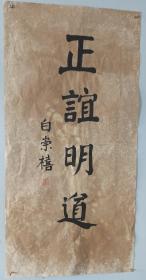 正誼明道
白崇禧